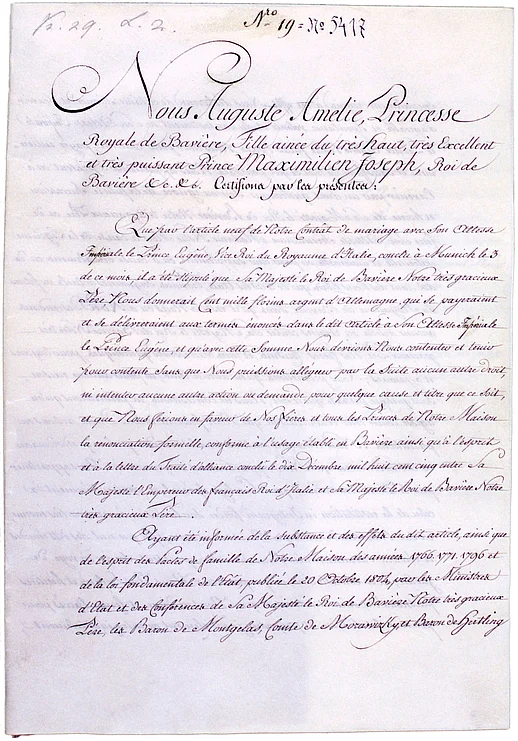 Nro 19 = No 5417
Nous Auguste Amelie, Princesse
Royale de Bavière, Fille ainée du très haut, très Excellent
et très puissant Prince Maximilien Joseph, Roi de
Bavière &c. &c. Certifions par les présentes:
Que par l'article neuf de Notre Contrat de mariage avec Son Altesse
Impériale le Prince Eugène, Vice Roi du Royaume d'Italie, conclu à Munich le 3
de ce mois, il a été stipulé que Sa Majesté le Roi de Bavière Notre très gracieux
Père Nous donnerait Cent mille florins argent d'Allemagne, qui se payeraient
et se délivreraient aux termes énoncés dans le dit article à Son Altesse Impériale
le Prince Eugène, et qu'avec cette Somme Nous devrions Nous contenter et tenir
pour contente Sans que Nous puissions alléguer par la Suite aucun autre droit,
ni intenter aucune autre action ou demande pour quelque cause et titre que ce Soit,
et que Nous ferions en faveur de Nos Frères et tous les Princes de Notre Maison
la renonciation formelle, conforme à l'usage établi en Bavière ainsi qu'à l'esprit
et à la lettre du Traité d'alliance conclu le dix Décembre mil huit cent cinq entre Sa
Majesté l'Empereur des français Roi d'Italie, et Sa Majesté le Roi de Bavière Notre
très gracieux Père
Ayant été informée de la Substance et des effets du dit article, ainsi que
de l'esprit des Pactes de famille de Notre Maison des années 1766. 1771. 1796 et
de la loi fondamentale de l'État, publiée le 20 Octobre 1804, par les Ministres
d'Etat et des Conférences de Sa Majesté le Roi de Bavière Notre très gracieux
Père, les Baron de Montgelas, Comte de Morawizky, et Baron de Hertling